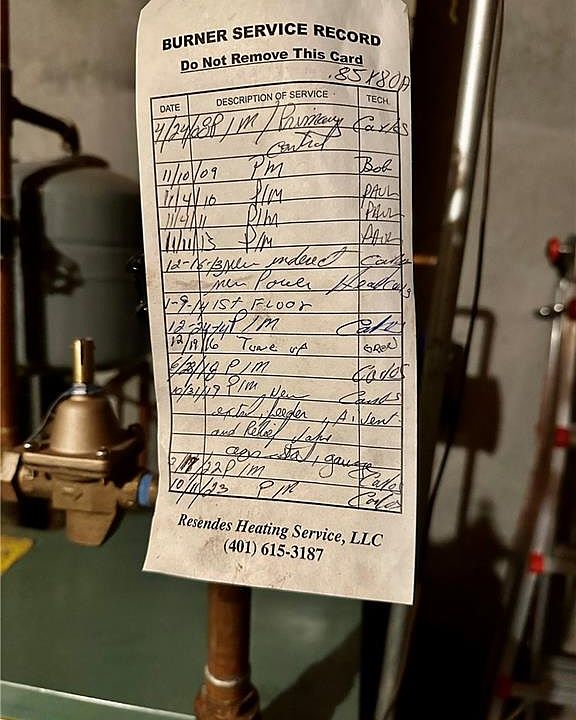 BURNER SERVICE RECORD
Do Not Remove This Card
.85X80A
DATE DESCRIPTION OF SERVICE TECH.
4/24/08 P/M / Primary Carlos
control
11/10/09 PM Bob
11/4/10 P/M PAUL
11/4/11 P/M PAUL
11/11/13 P/M PAUL
12-16-13 New indirect Carlos
new Power
1-9-14 1ST FLOOR
12-24-14 P/M Carlos
12/19/16 Tune up GREG
6/28/18 P/M Carlos
10/31/19 P/M New Carlos
feeder, Air vent
and Relief
gauge
22 P/M Carlos
10/11/23 PM Carlos
Resendes Heating Service, LLC
(401) 615-3187